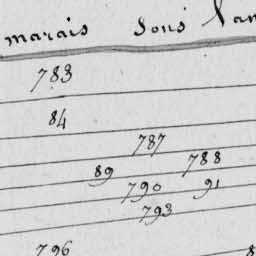 marais sous
783
84
787
89 788
790 91
793
796 8